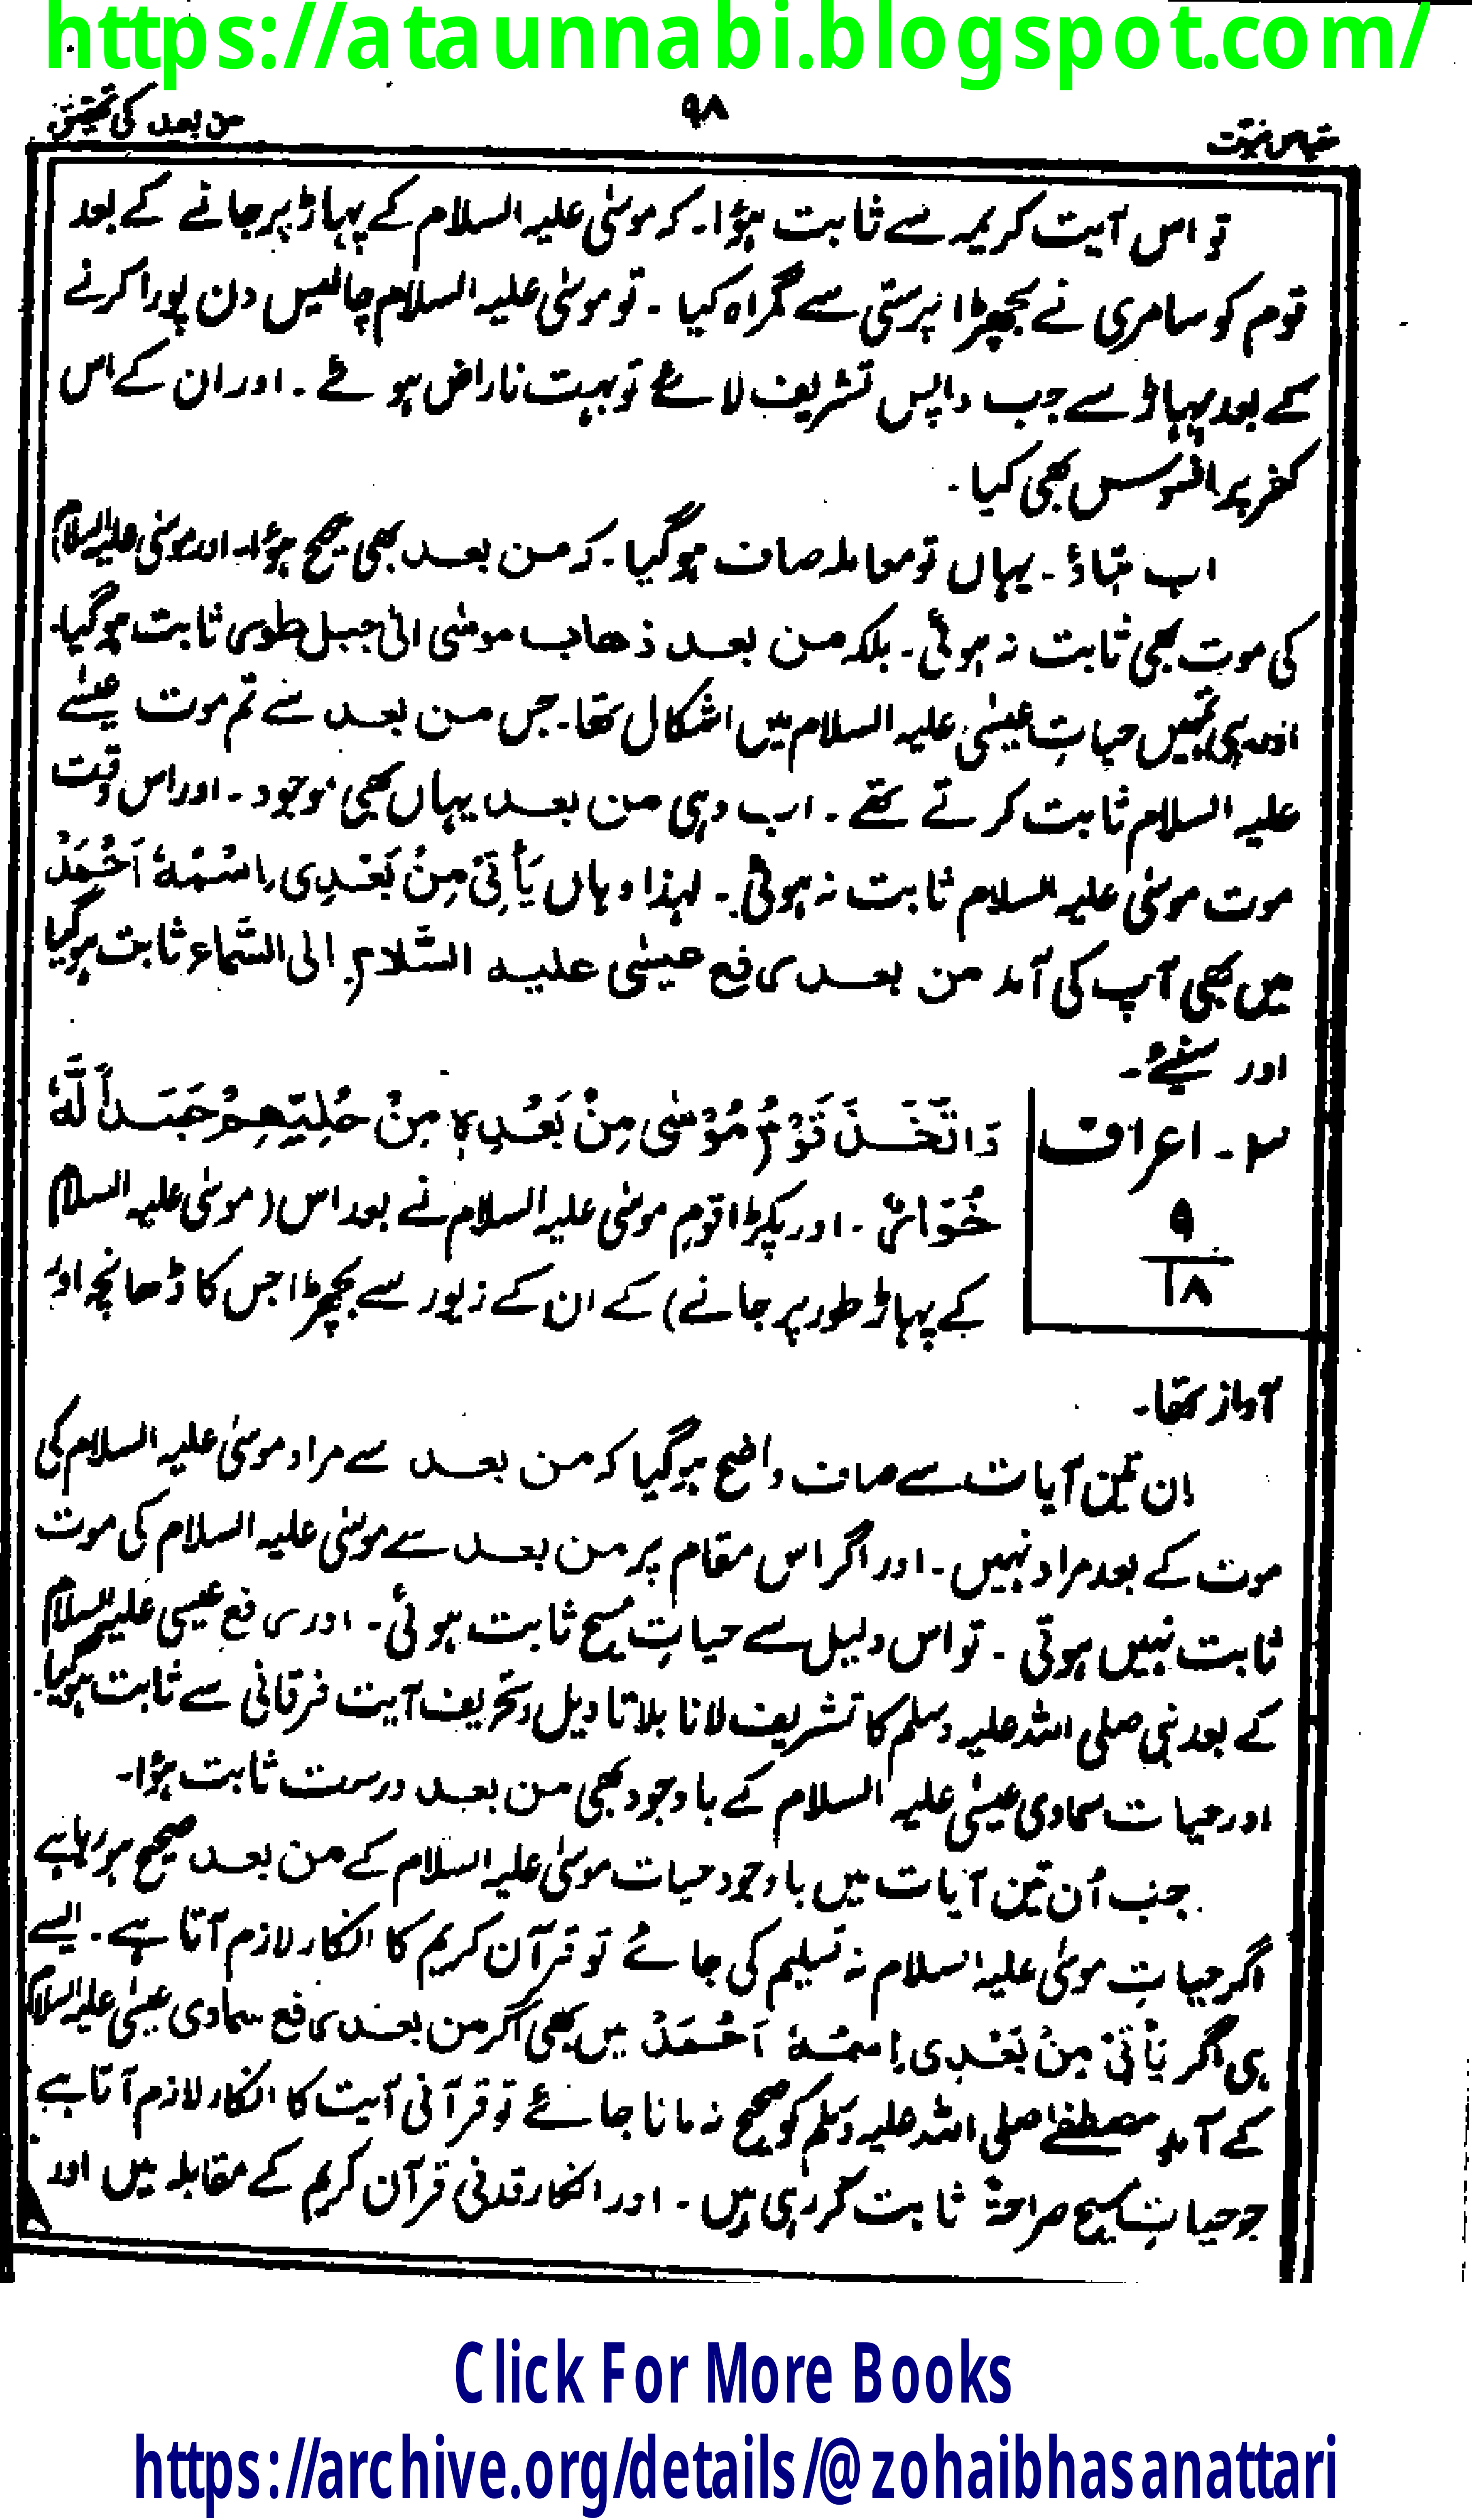 https://ataunnabi.blogspot.com/
مقیاس نبوت ۹۸ من بعد کی تحقیق
تو اس آیت کریمہ سے ثابت ہؤا۔ کہ موسٰی علیہ السلام کے پہاڑ پر جانے کے بعد
قوم کو سامری نے بچھڑا پرستی سے گمراہ کیا ۔ تو موسٰی علیہ السلام چالیس دن پورا کرنے
کے بعد پہاڑ سے جب واپس تشریف لائے تو بہت ناراض ہوئے ۔ اور ان کے اس
کفر پر افسوس بھی کیا ۔
اب بتاؤ ۔ یہاں تو معاملہ صاف ہوگیا ۔ کہ من بعد بھی صحیح ہؤا۔ اور موسٰی علیہ السلام
کی موت بھی ثابت نہ ہوئی ۔ بلکہ من بعد ذھاب موسٰی الیٰ جبل طور ثابت ہوگیا۔
اور یہی تمہیں حیاتِ عیسٰی علیہ السلام میں اشکال تھا۔ جس من بعد سے تم موت عیسٰے
علیہ السلام ثابت کرتے تھے ۔ اب وہی من بعد یہاں بھی موجود ۔ اور اس وقت
موت موسٰی علیہ السلام ثابت نہ ہوئی ۔ لہذا وہاں یَأْتِیْ مِنْ بَعْدِی اسْمُهٗ اَحْمَدْ
میں بھی آپ کی آمد من بعد رفع عیسٰی علیہ السَّلام الی السَّماء ثابت ہوگیا
اور سنیئے ۔
۳ ۔ اعراف
۹
۱۸
وَاتَّخَذَ قَوْمُ مُوْسٰی مِنْ بَعْدِہٖ مِنْ حُلِیِّھِمْ جَسَداً لَّهٗ
خُوَارٌ ۔ اور پکڑا قومِ موسٰی علیہ السلام نے بعد اس (موسٰی علیہ السلام
کے پہاڑ طور پر جانے) کے ان کے زیور سے بچھڑا جس کا ڈھانچہ اور
آواز تھا۔
ان تین آیات سے صاف واضح ہوگیا کہ من بعد سے مراد موسٰی علیہ السلام کی
موت کے بعد مراد نہیں ۔ اور اگر اس مقام پر من بعد سے موسٰی علیہ السلام کی موت
ثابت نہیں ہوتی ۔ تو اس دلیل سے حیاتِ مسیح ثابت ہوئی ۔ اور رفع عیسٰی علیہ السلام
کے بعد نبی صلی اللہ علیہ وسلم کا تشریف لانا بلا تاویل و تحریف آیت فرقانی سے ثابت ہوگیا۔
اور حیات سماوی عیسٰی علیہ السلام کے باوجود بھی من بعد درست ثابت ہؤا۔
جب اُن تین آیات میں باوجود حیات موسٰی علیہ السلام کے من بعد صحیح ہو رہا ہے
اگر حیاتِ موسٰی علیہ السلام نہ تسلیم کی جائے تو قرآن کریم کا انکار لازم آتا ہے ۔ ایسے
ہی اگر یَأْتِیْ مِنْ بَعْدِی اسْمُهٗ اَحْمَدْ میں بھی اگر من بعد رفع سماوی عیسٰی علیہ السلام
کے آمد مصطفےٰ صلی اللہ علیہ وسلم کو صحیح نہ مانا جائے تو قرآنی آیت کا انکار لازم آتا ہے
جو حیاتِ مسیح صراحۃً ثابت کر رہی ہیں ۔ اور انکار قدنی قرآن کریم کے مقابلہ میں اور
Click For More Books
https://archive.org/details/@zohaibhasanattari